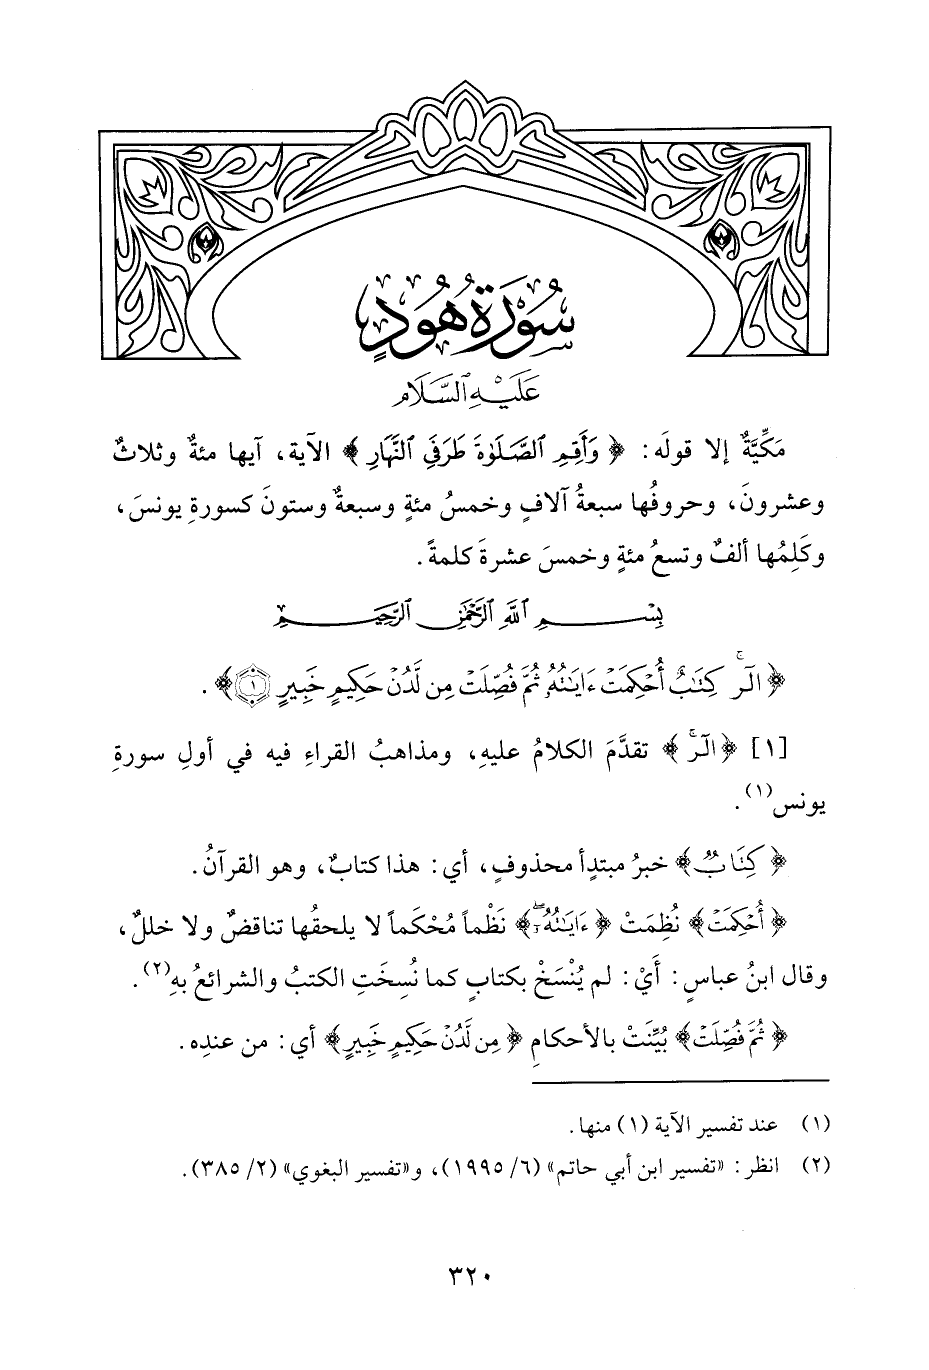 سُورَةُ هُودٍ
عَلَيْهِ ٱلسَّلَام
مَكِّيَّةٌ إلا قولَه: ﴿وَأَقِمِ ٱلصَّلَوٰةَ طَرَفَيِ ٱلنَّهَارِ﴾ الآية، آيها مئةٌ وثلاثٌ
وعشرونَ، وحروفُها سبعةُ آلافٍ وخمسُ مئةٍ وسبعةٌ وستونَ كسورةِ يونسَ،
وكَلِمُها ألفٌ وتسعُ مئةٍ وخمسَ عشرةَ كلمةً.
بِسْمِ ٱللَّهِ ٱلرَّحْمَٰنِ ٱلرَّحِيمِ
﴿الٓرۚ كِتَٰبٌ أُحْكِمَتْ ءَايَٰتُهُۥ ثُمَّ فُصِّلَتْ مِن لَّدُنْ حَكِيمٍ خَبِيرٍ ١﴾.
[١] ﴿الٓرۚ﴾ تقدَّمَ الكلامُ عليهِ، ومذاهبُ القراءِ فيه في أولِ سورةِ
يونس(١).
﴿كِتَابٌ﴾ خبرُ مبتدأ محذوفٍ، أي: هذا كتابٌ، وهو القرآنُ.
﴿أُحْكِمَتْ﴾ نُظِمَتْ ﴿ءَايَٰتُهُۥ﴾ نَظْماً مُحْكَماً لا يلحقُها تناقضٌ ولا خللٌ،
وقال ابنُ عباسٍ: أَيْ: لم يُنْسَخْ بكتابٍ كما نُسِخَتِ الكتبُ والشرائعُ بهِ(٢).
﴿ثُمَّ فُصِّلَتْ﴾ بُيِّنَتْ بالأحكامِ ﴿مِن لَّدُنْ حَكِيمٍ خَبِيرٍ﴾ أي: من عندِه.
(١) عند تفسير الآية (١) منها.
(٢) انظر: «تفسير ابن أبي حاتم» (٦/ ١٩٩٥)، و«تفسير البغوي» (٢/ ٣٨٥).
٣٢٠